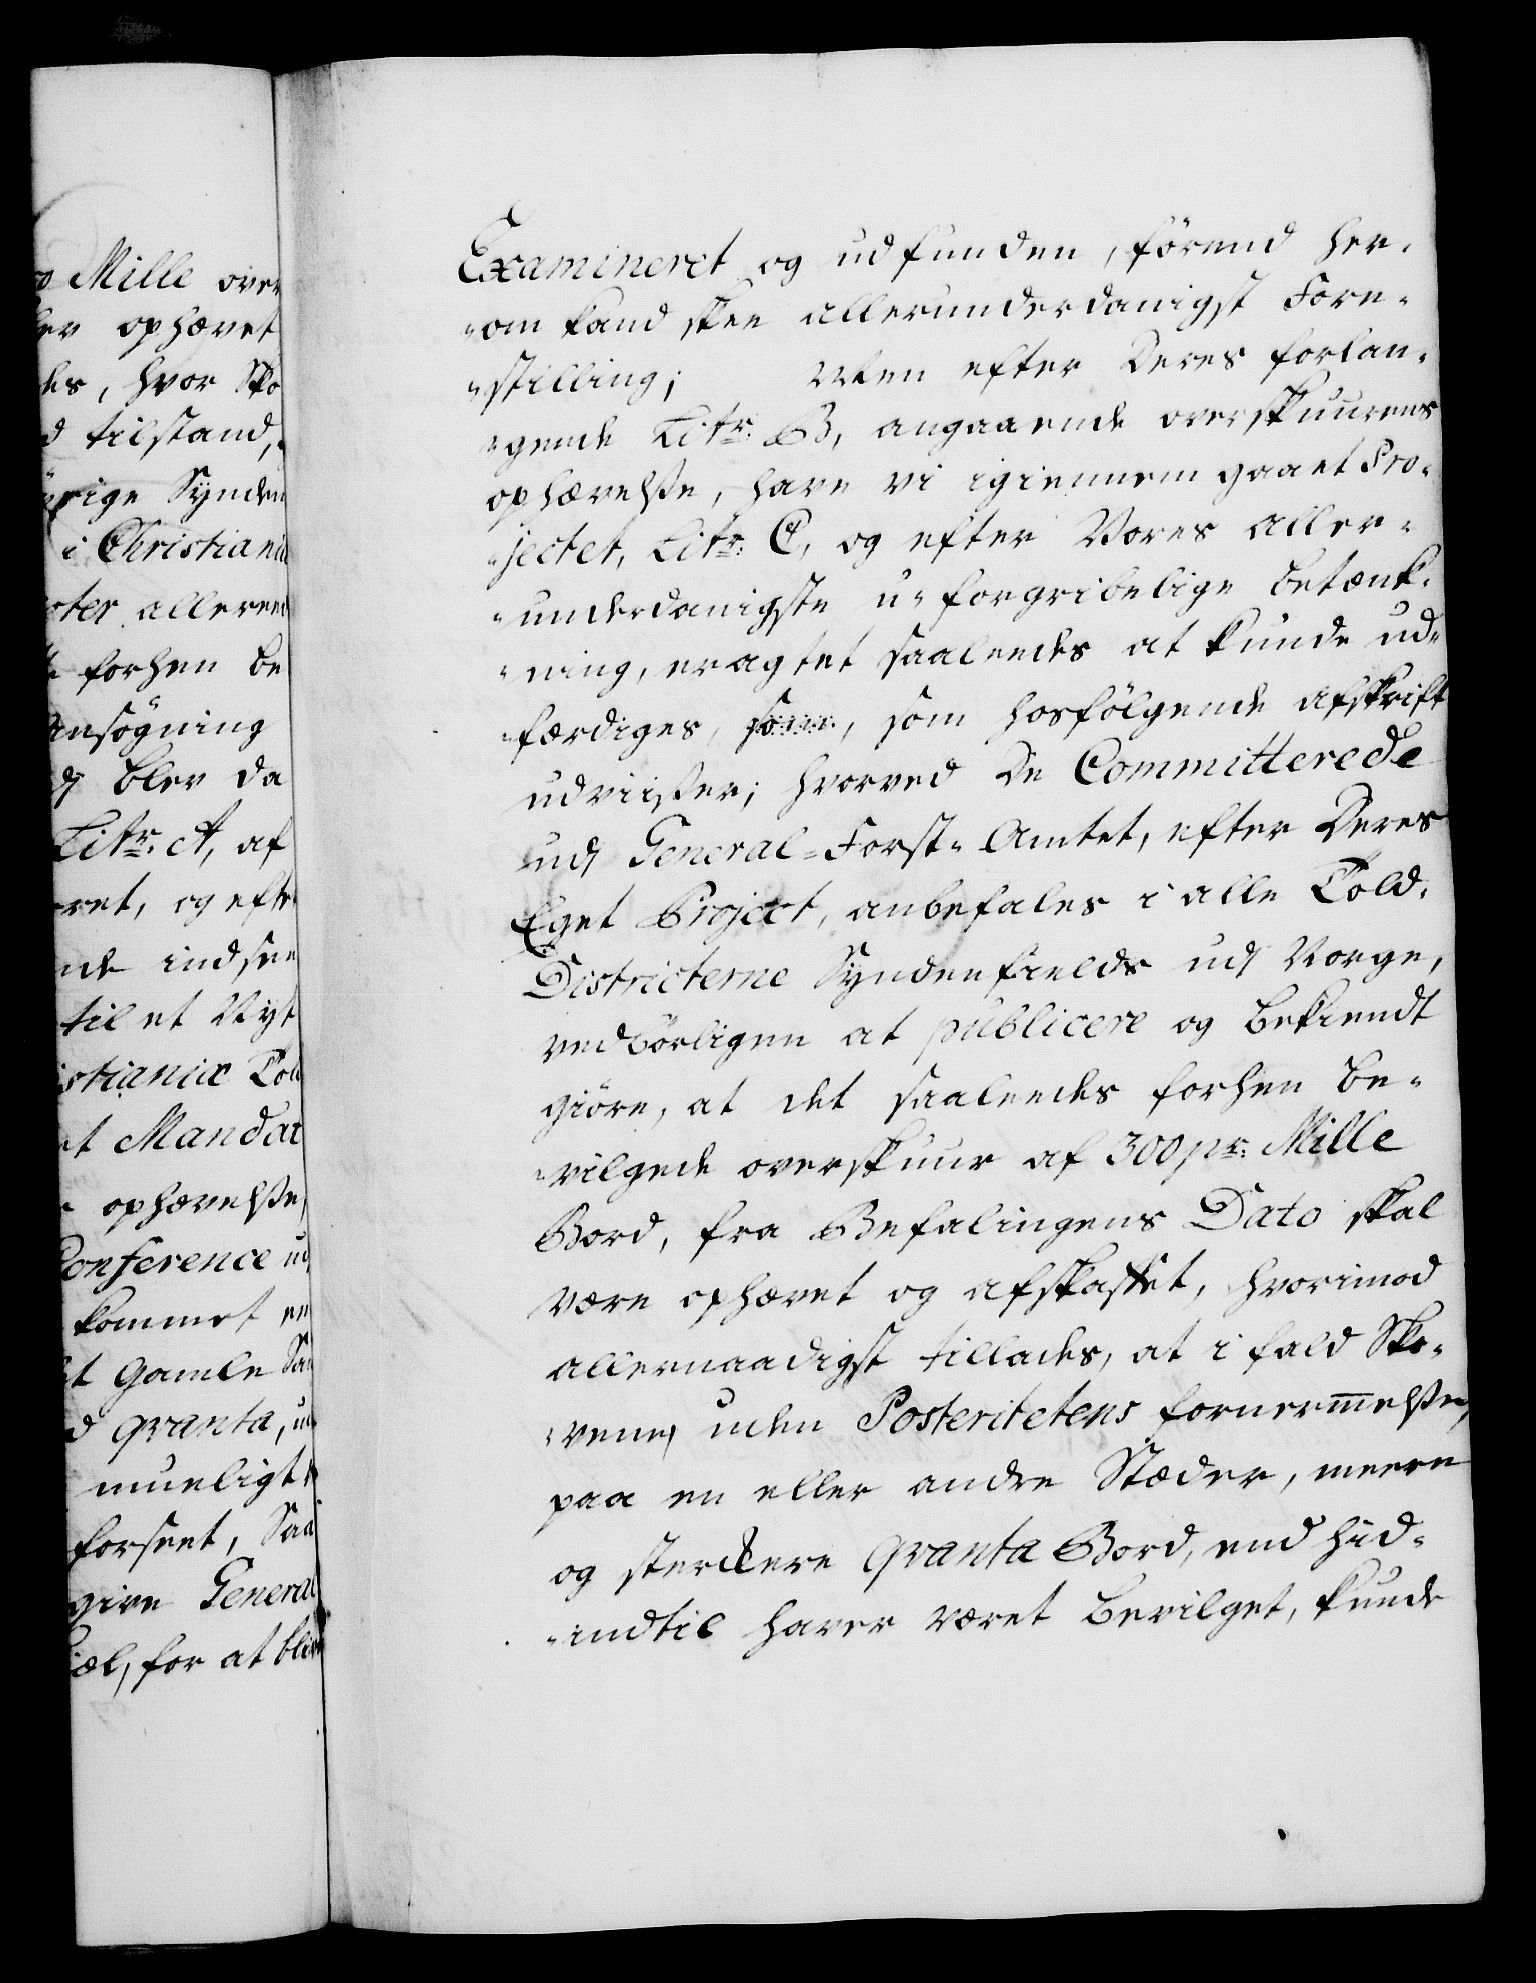 o Mille over
er ophævet
des, hvor Sko
d tilstand,
øfrige Synden
i Christiania
ter allereed
forhen be
Ansøgning
dj blev da
Litr. A, af
ret, og efter
nde indsee
til et Nyt
istianiæ Told
et Mandat
ophævelse,
Conference ud
kommet en
t gamle Saa
d qvanta, ud
mueligt
forseet, Saa
give General
el, for at bliv
Examineret og udfunden, førend her-
-om kand skee allerunderdanigst Fore-
-stilling; Men efter Deres forlan-
-gende Litr: B, angaaende overskuurens
ophævelse, have vi igiennem gaaet Pro-
-jectet, Litr: C, og efter Vores aller-
-underdanigste u-forgribelige betænk-
-ning, eragtet saaleedes at kunde ud-
-færdiges, som, som hosfølgende afskrift
udviiser; hvorved De Committerede
udj General-Forst-Amtet, efter Deres
Eget Project, anbefales i alle Told-
Districterne Syndenfields udj Norge,
vedbørligen at publicere og bekiendt
giøre, at det saaleedes forhen be-
-vilgede overskuur af 300 pr: Mille
Bord, fra Befalingens Dato skal
være ophævet og afskaffet, hvorimod
allernaadigst tillades, at i fald Sko-
-vene, uden Posteritetens fornermelse,
paa en eller andre Stæder, meere
og sterckere qvanta Bord, end hid-
-indtil haver været bevilget, kunde